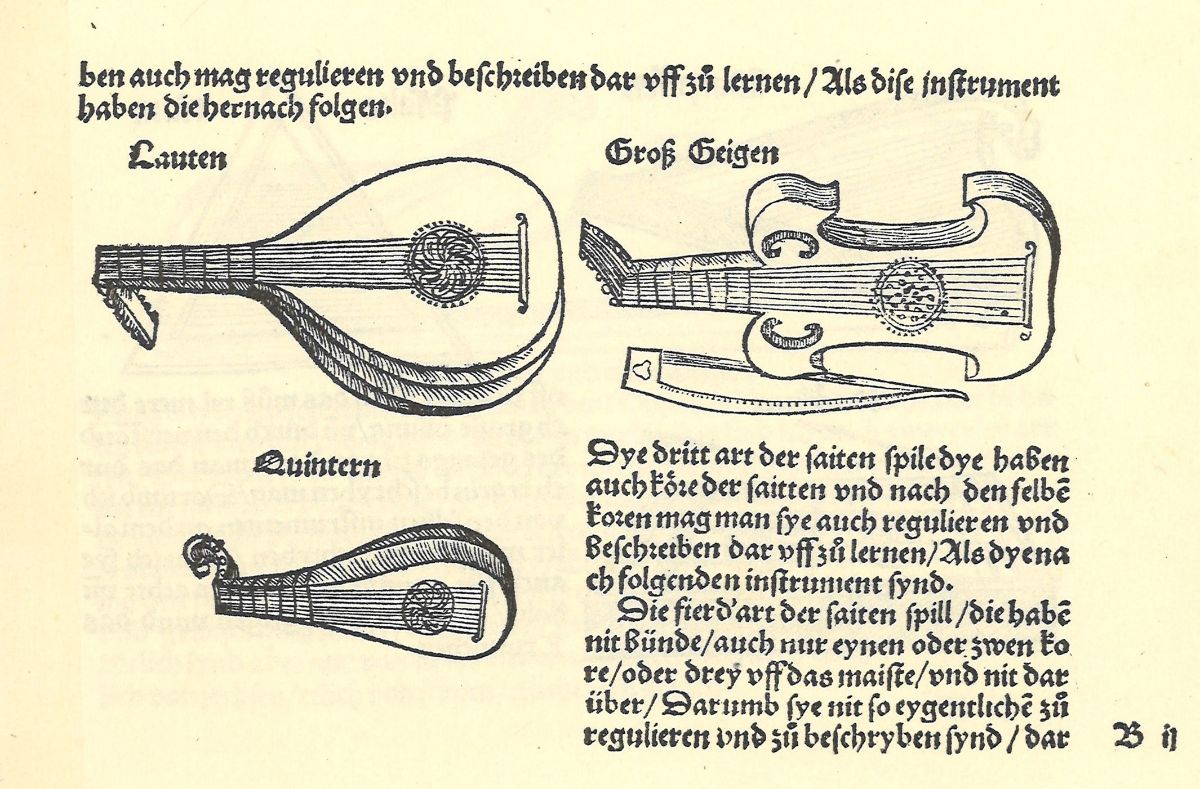 ben auch mag regulieren vnd beschreiben dar vff zů lernen / Als dise instrument
haben die hernach folgen.
Lauten
Groß Geigen
Quintern
Dye dritt art der saiten spile dye haben
auch köre der saitten vnd nach den selbē
koren mag man sye auch regulieren vnd
beschreiben dar vff zů lernen/Als dye na
ch folgenden instrument synd.
Die fierd' art der saiten spill/die habē
nit bünde/auch nur eynen oder zwen ko
re/oder drey vff das maiste/vnd nit dar
über/Darumb sye nit so eygentlichē zů
regulieren vnd zů beschryben synd/dar
B ij